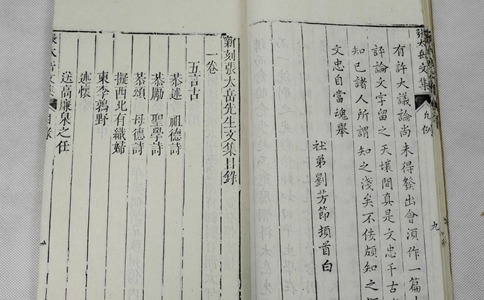 張太岳文集 凡例 九
有許大議論尚未得發出會須作一篇
評論文字留之天壤間真是文忠千古
知己諸人所謂知之淺矣不佞頗知之
文忠自當魂舉
社弟劉芳節頓首白
新刻張太岳先生文集目錄
一卷
五言古
恭述 祖德詩
恭勵 聖學詩
恭頌 母德詩
擬西北有織婦
東李鶚野
述懷
送高廉泉之任
張太岳文集 目錄